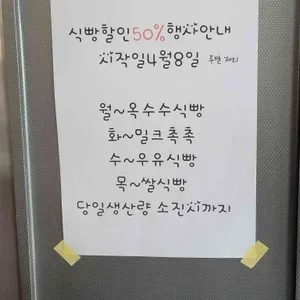 식빵할인50%행사안내
시작일4월8일 주말 제외
월~옥수수식빵
화~밀크촉촉
수~우유식빵
목~쌀식빵
당일생산량 소진시까지